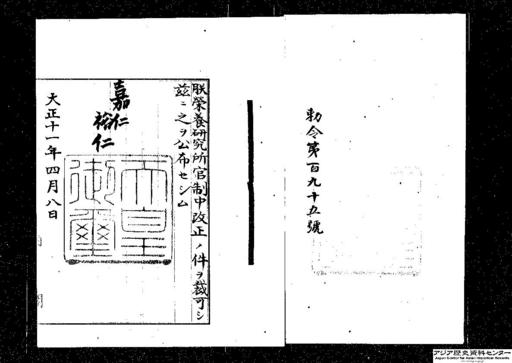 朕榮養研究所官制中改正ノ件ヲ裁可シ
茲ニ之ヲ公布セシム
嘉仁
裕仁
天皇
御璽
大正十一年四月八日
勅令第百九十五號
アジア歴史資料センター
Japan Center for Asian Historical Records